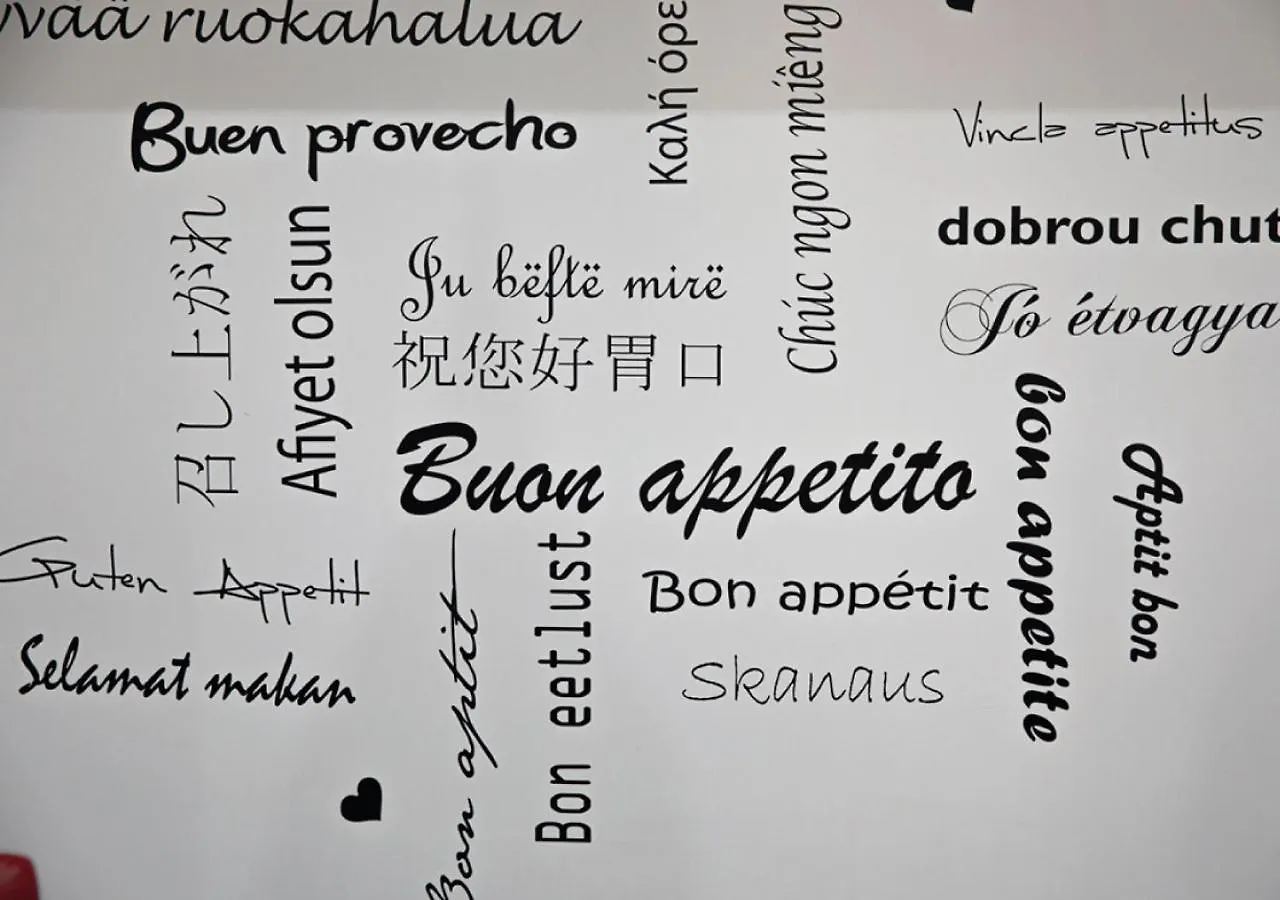 vää ruokahalua
Buen provecho
Καλή όρε
Chúc ngon miêng
Vincla appetitus
dobrou chut
召し上がれ
Afiyet olsun
Ju bëftë mirë
Jó étvagya
祝您好胃口
bon appetite
Buon appetito
Aptit bon
Guten Appetit
Bon aptit
Bon eetlust
Bon appétit
Selamat makan
Skanaus